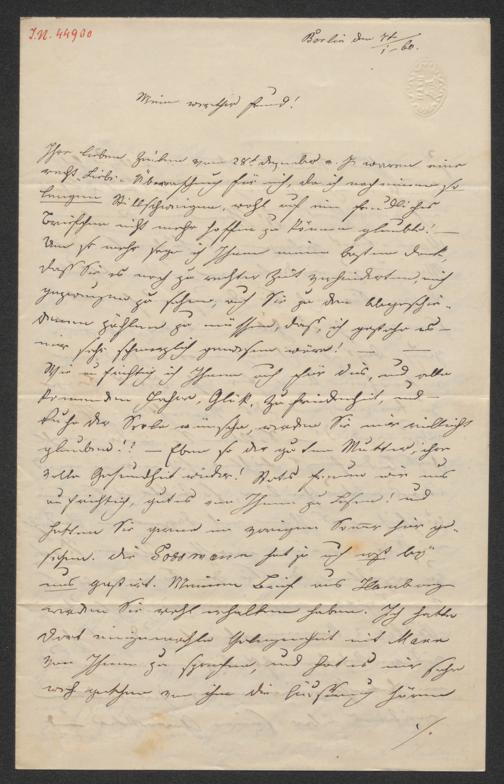 I.N. 44900
Berlin den 7t/1. 60.
Mein werther Freund!
Ihre lieben Zeilen vom 28t Dezember v. J. waren eine
recht liebe Überraschung für mich, da ich nach einem so
langen Stillschweigen, wohl auf ein freundliches
Briefchen nicht mehr hoffen zu können glaubte! —
Um so mehr sage ich Ihnen meinen besten Dank,
daß Sie es noch zu rechter Zeit verhinderten, mich
gezwungen zu sehen, auch Sie zu den Abgeschie-
denen zählen zu müssen, daß, ich gestehe es —
mir sehr schmerzlich gewesen wäre! — —
Wie aufrichtig ich Ihnen auch für das, und alle
kommenden Jahre, Glük, Zufriedenheit, und —
Ruhe der Seele wünsche, werden Sie mir vielleicht
glauben!! — Eben so der guten Mutter, ihre
volle Gesundheit wieder! Stets freuen wir uns
aufrichtig, gutes von Ihnen zu lesen! und
hätten Sie gerne im vorigen Somer hier ge-
sehen. Die hat ja auch erst bey
uns gastirt. Meinen Brief aus Hamburg
werden Sie wohl erhalten haben. Ich hatte
dort einigemahle Gelegenheit mit
von Ihnen zu sprechen, und hat es mir sehr
weh gethan von ihm die hören
./.